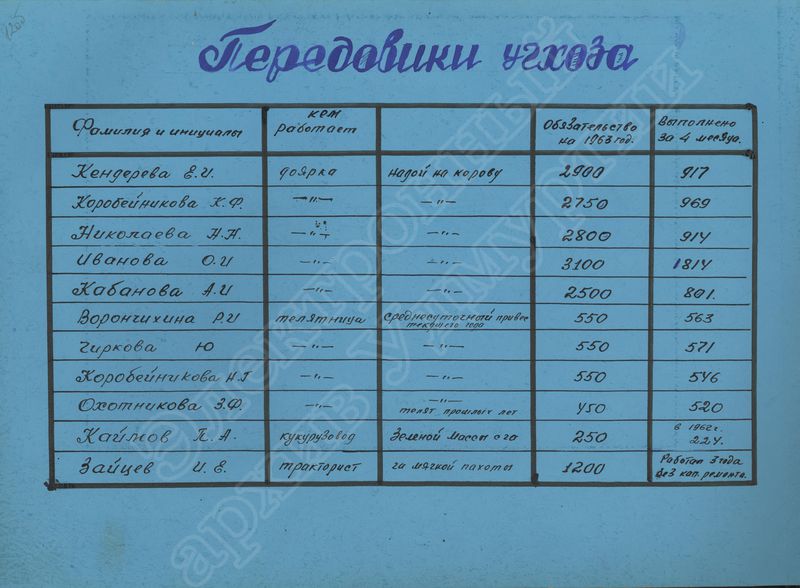 1200
Передовики учхоза
Фамилия и инициалы | кем работает | | Обязательство на 1963 год. | Выполнено за 4 месяца.
Кендерева Е.И. | доярка | надой на корову | 2900 | 917
Коробейникова К.Ф. | —"— | —"— | 2750 | 969
Николаева Н.Н. | —"— | —"— | 2800 | 914
Иванова О.И | —"— | —"— | 3100 | 1814
Кабанова А.И | —"— | —"— | 2500 | 801.
Ворончихина Р.И | телятница | среднесуточный привес текущего года | 550 | 563
Чиркова Ю | —"— | —"— | 550 | 571
Коробейникова Н.Г | —"— | —"— | 550 | 546
Охотникова З.Ф. | —"— | —"— телят прошлых лет | 450 | 520
Каймов П.А. | кукурузовод | Зеленой массы с га | 250 | в 1962г. 224.
Зайцев И.Е. | тракторист | га мягкой пахоты | 1200 | Работал 3 года без кап. ремонта.
Электронный
архив Удмуртии